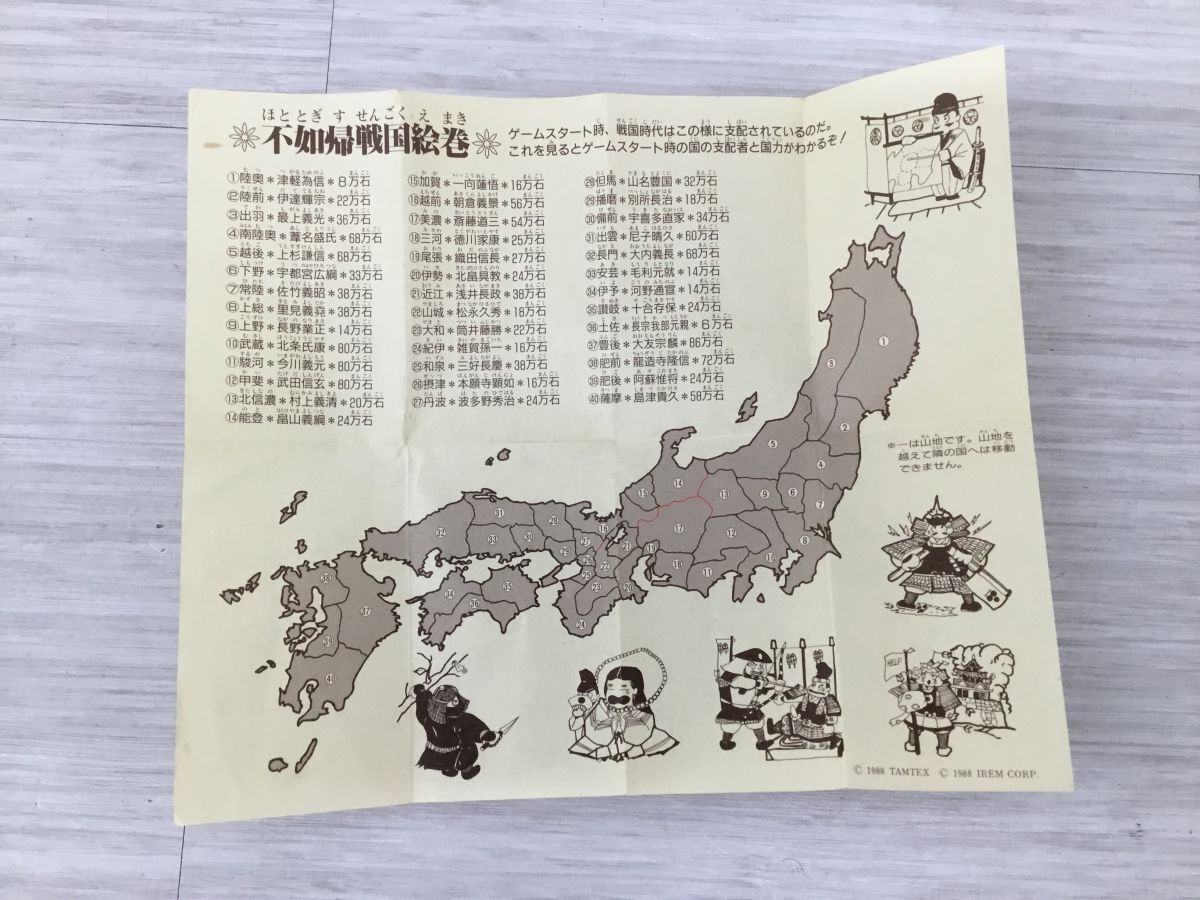 ほととぎ す せんごく え まき
不如帰戦国絵巻
ゲームスタート時、戦国時代はこの様に支配されているのだ。
これを見るとゲームスタート時の国の支配者と国力がわかるぞ!
①陸奥*津軽為信*8万石
②陸前*伊達輝宗*22万石
③出羽*最上義光*36万石
④南陸奥*葦名盛氏*68万石
⑤越後*上杉謙信*68万石
⑥下野*宇都宮広綱*33万石
⑦常陸*佐竹義昭*38万石
⑧上総*里見義堯*38万石
⑨上野*長野業正*14万石
⑩武蔵*北条氏康*80万石
⑪駿河*今川義元*80万石
⑫甲斐*武田信玄*80万石
⑬北信濃*村上義清*20万石
⑭能登*畠山義綱*24万石
⑮加賀*一向蓮悟*16万石
⑯越前*朝倉義景*56万石
⑰美濃*斎藤道三*54万石
⑱三河*徳川家康*25万石
⑲尾張*織田信長*27万石
⑳伊勢*北畠具教*24万石
㉑近江*浅井長政*38万石
㉒山城*松永久秀*18万石
㉓大和*筒井藤勝*22万石
㉔紀伊*雑賀孫一*16万石
㉕和泉*三好長慶*38万石
㉖摂津*本願寺顕如*16万石
㉗丹波*波多野秀治*24万石
㉘但馬*山名豊国*32万石
㉙播磨*別所長治*18万石
㉚備前*宇喜多直家*34万石
㉛出雲*尼子晴久*60万石
㉜長門*大内義長*68万石
㉝安芸*毛利元就*14万石
㉞伊予*河野通宣*14万石
㉟讃岐*十合存保*24万石
㊱土佐*長宗我部元親*6万石
㊲豊後*大友宗麟*86万石
㊳肥前*龍造寺隆信*72万石
㊴肥後*阿蘇惟将*24万石
㊵薩摩*島津貴久*58万石
※ーは山地です。山地を
越えて隣の国へは移動
できません。
HELP
© 1988 TAMTEX © 1988 IREM CORP.